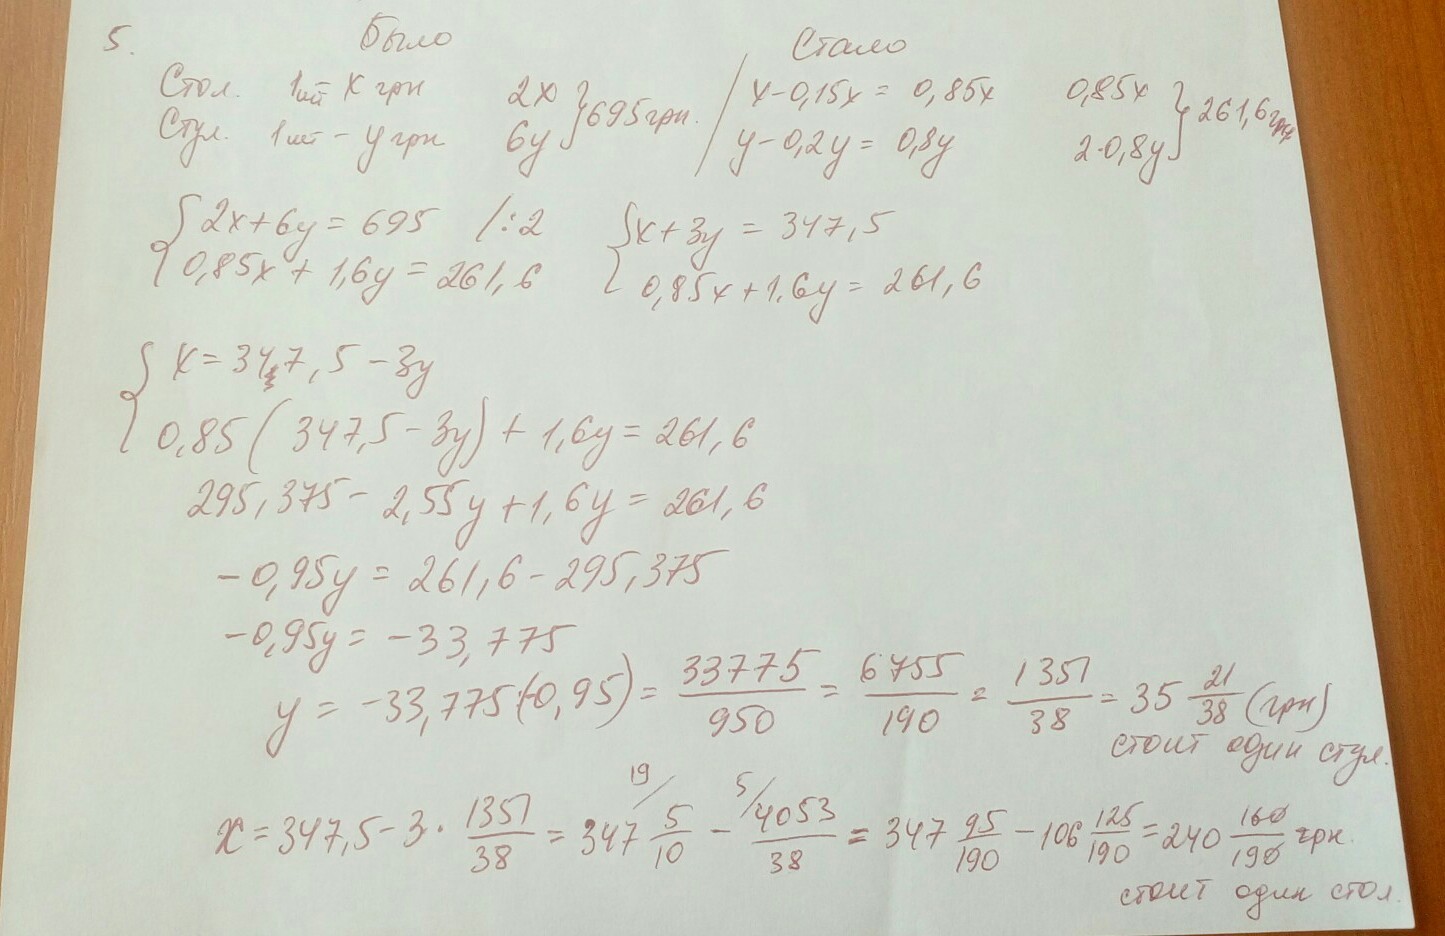 5. Было Стало
Стол. 1шт - x грн 2x } 695 грн. / x-0,15x = 0,85x 0,85x } 261,6 грн
Стул. 1шт - y грн 6y y-0,2y = 0,8y 2·0,8y
{ 2x+6y = 695 /:2 { x+3y = 347,5
0,85x + 1,6y = 261,6 0,85x+1,6y = 261,6
{ x = 347,5 - 3y
0,85 (347,5 - 3y) + 1,6y = 261,6
295,375 - 2,55y + 1,6y = 261,6
-0,95y = 261,6 - 295,375
-0,95y = -33,775
y = -33,775:(-0,95) = 33775/950 = 6755/190 = 1351/38 = 35 21/38 (грн)
стоит один стул.
x = 347,5 - 3 · 1351/38 = 347 19/ 5/10 - 5/ 4053/38 = 347 95/190 - 106 125/190 = 240 160/190 грн.
стоит один стол.